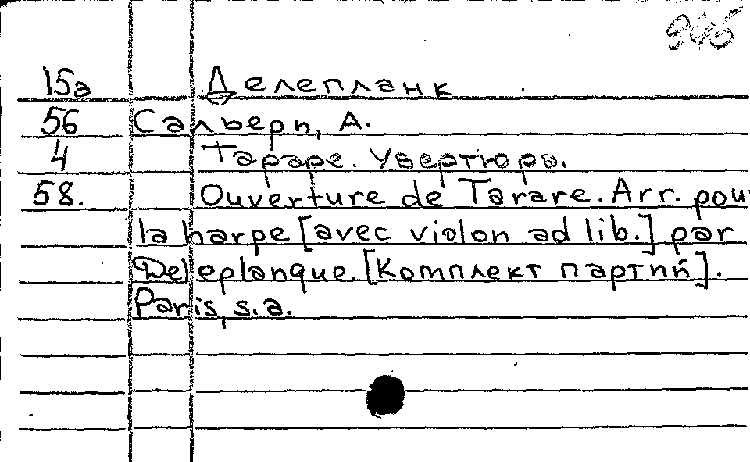 945
15а Делепланк
56 Сальери, А.
4 Тараре. Увертюра.
58. Ouverture de Tarare. Arr. pour
la harpe [avec violon ad lib.] par
Deleplanque. [Комплект партий].
Paris, s.a.